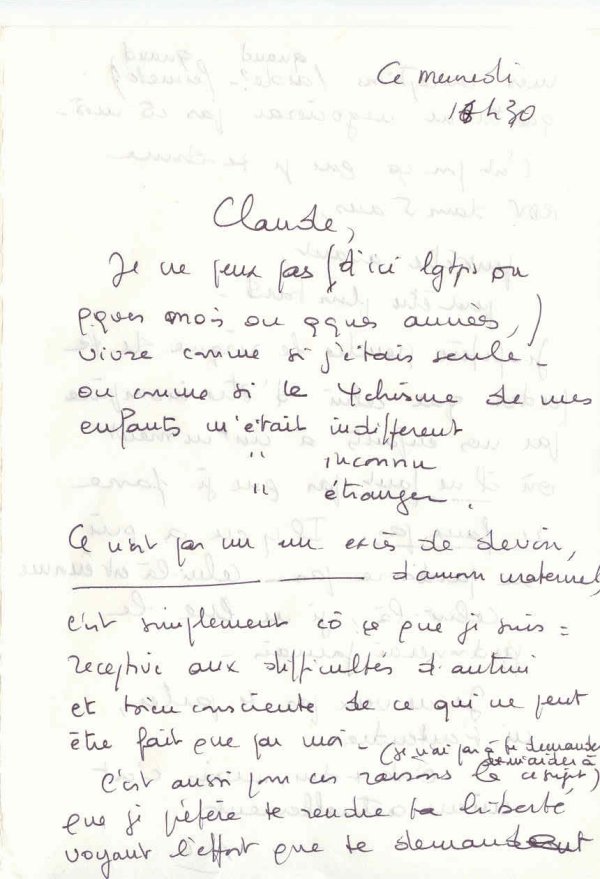 Ce mercredi
1 h 30
Claude,
Je ne peux pas (d'ici lgtps ou
qques mois ou qques années,)
vivre comme si j'étais seule -
ou comme si le de mes
enfants m'était indifférent
" inconnu
" étranger.
Ce n'est pas un excès de devoir,
d'amour maternel,
c'est simplement cô ça que je suis =
réceptive aux difficultés d'autrui
et bien consciente de ce qui ne peut
être fait que par moi - (je n'ai pas à te demander
de m'aider à
C'est aussi pour ces raisons là ce sujet)
que je préfère te rendre ta liberté,
voyant l'effort que te